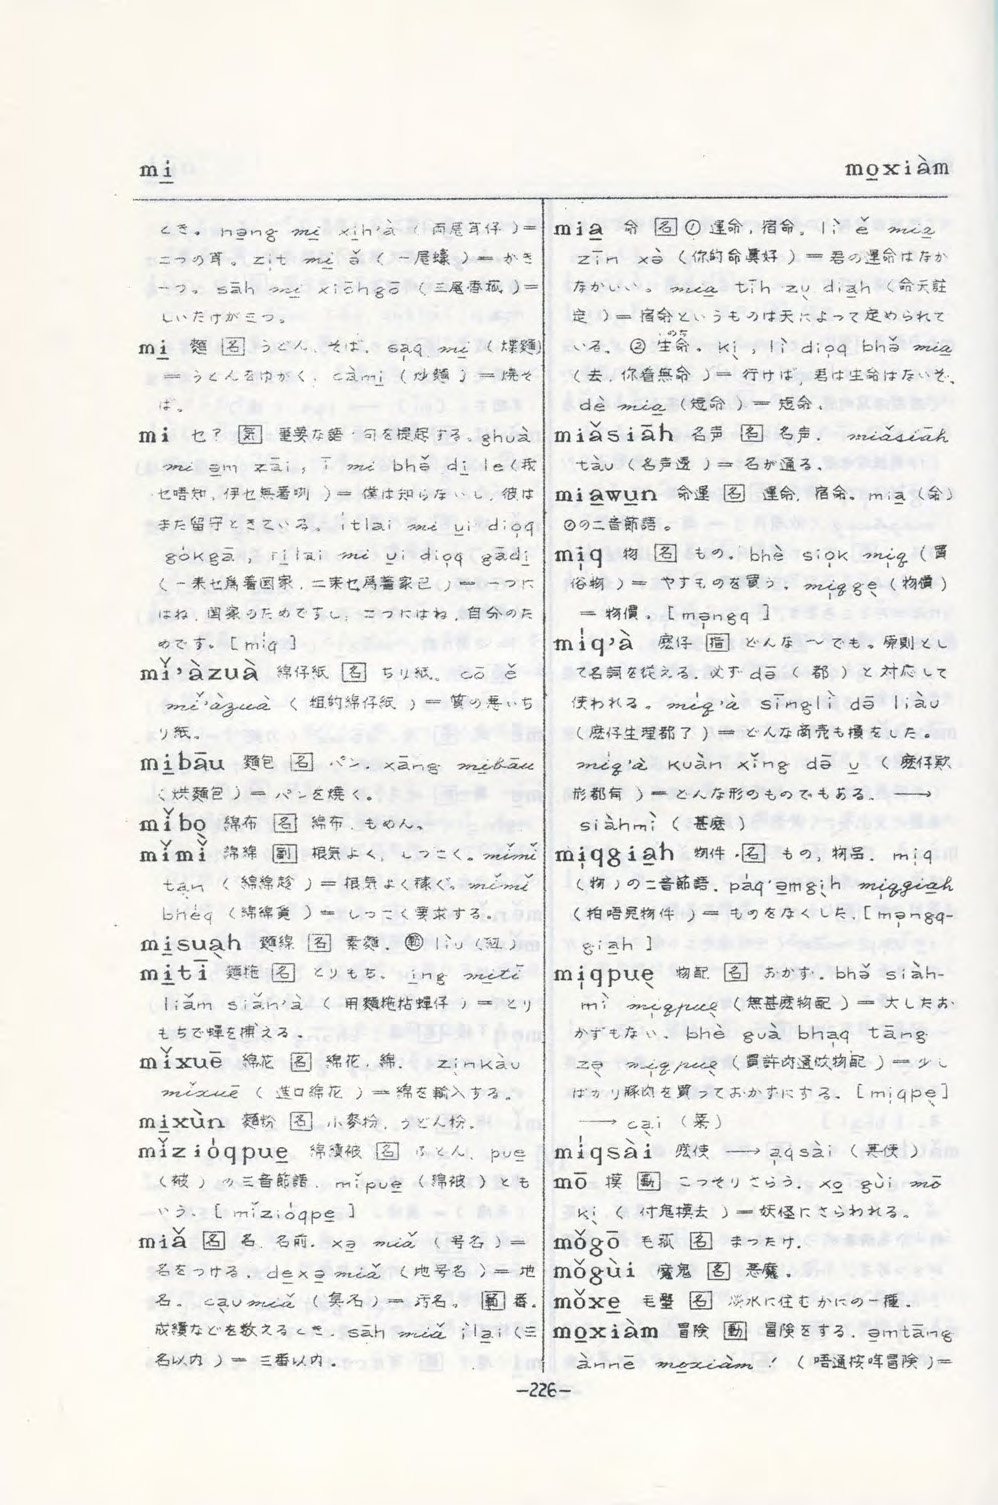 mi̱
mo̱xiàm
とき。na̱ng mi̱ xi̱h'à (両尾耳仔)=
二つの耳。zi̍t mi̱ ǒ (一尾蠔)=かき
一つ。sāh mi̱ xiōhgō (三尾香菰)=
しいたけが三つ。
mi̱ 麵 [名] うどん、そば。sa̍q mi̱ (煠麵)
=うどんをゆがく。càmi̱ (炒麵)=焼そ
ば。
mi 乜? [気] 重要な語・句を提起する。ghuà
mi ə̱m zāi, ī mi bhě di̱ le (我
乜唔知,伊乜無著咧)=僕は知らないし,彼は
また留守ときている。ìtlai mi ṳi dio̍q
gòkgā, rı̱lai mi ṳi dio̍q gādı̱
(一来乜為著国家,二来乜為著家己)=一つに
はね,国家のためですし,二つにはね,自分のた
めです。[mi̍q]
mǐ'àzuà 綿仔紙 [名] ちり紙。cō ě
mǐ'àzuà (粗的綿仔紙)=質の悪いち
り紙。
mi̱bāu 麵包 [名] パン。xāng mi̱bāu
(烘麵包)=パンを焼く。
mǐbo 綿布 [名] 綿布、もめん。
mǐmǐ 綿綿 [副] 根気よく,しつこく。mǐmǐ
tan (綿綿趁)=根気よく稼ぐ。mǐmǐ
bhēq (綿綿覓)=しつこく要求する。
mi̱suah 麵線 [名] 素麵。[数] liu
mi̱tī 麵𥻵 [名] とりもち。ing mi̱tī
liǎm siǎn'à (用麵𥻵粘蟬仔)=とり
もちで蟬を捕える。
mǐxuē 綿花 [名] 綿花,綿。zinkàu
mǐxuē (進口綿花)=綿を輸入する。
mi̱xùn 麵粉 [名] 小麥粉,うどん粉。
mǐzio̍qpue̱ 綿績被 [名] ふとん。pue̱
(被)の三音節語。mǐpue̱ (綿被)とも
いう。[mǐzio̍qpe̱]
miǎ [名] 名、名前。xə miǎ (号名)=
名をつける。de̱xə miǎ (地号名)=地
名。cau miǎ (臭名)=汚名。[数] 番。
成績などを数えるとき。sāh miǎ ìlai (三
名以内)=三番以内。
mia̱ 命 [名] ①運命,宿命。lì ě mia̱
zīn xə̀ (你的命真好)=君の運命はなか
なかいい。mia̱ tīh zu dia̱h (命天註
定)=宿命というものは天によって定められて
いる。②生命。ki, lì dio̍q bhǒ mia̱
(去,你着無命)=行けば,君は生命はないぞ。
dè mia̱ (短命)=短命。
miǎsiāh 名声 [名] 名声。miǎsiāh
tàu (名声透)=名が通る。
mia̱wu̱n 命運 [名] 運命,宿命。mia̱ (命)
①の二音節語。
mi̍q 物 [名] もの。bhè sio̍k mi̍q (買
俗物)=やすものを買う。mi̍qge (物價)
=物價。[mə̍ngq]
mi̍q'à 麽仔 [指] どんな〜でも。原則とし
て名詞を従える。必ず dō (都)と対応して
使われる。mi̍q'à sīnglì dō liàu
(麽仔生理都了)=どんな商売も損をした。
mi̍q'à kuàn xǐng dō ṳ (麽仔款
形都有)=どんな形のものでもある。→
siàhmì (甚麽)
mi̍qgia̱h 物件 [名] もの,物品。mi̍q
(物)の二音節語。páq'ə̱mgi̱h mi̍qgia̱h
(拍唔見物件)=ものをなくした。[mə̍ngq-
gia̱h]
mi̍qpue 物配 [名] おかず。bhǒ siàh-
mì mi̍qpue (無甚麽物配)=大したお
かずもない。bhè guà bhaq tāng
zə mi̍qpue (買許肉通做物配)=少し
ばかり豚肉を買っておかずにする。[mi̍qpe]
→ cai (菜)
mi̍qsài 麽使 → a̍qsài (曷使)
mō 摸 [動] こっそりさらう。xo̱ gùi mō
ki (付鬼摸去)=妖怪にさらわれる。
mǒgō 毛菰 [名] まったけ。
mǒgùi 魔鬼 [名] 悪魔。
mǒxe̱ 毛蟹 [名] 淡水に住むかにの一種。
mo̱xiàm 冒険 [動] 冒険をする。ə̱mtāng
ànnē mo̱xiàm! (唔通按哖冒険)=
—226—